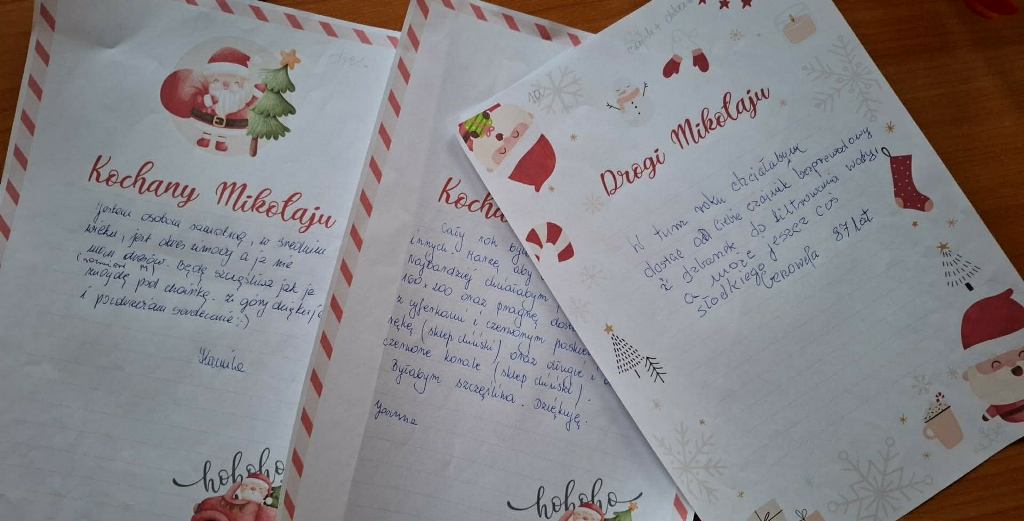 Kochany Mikołaju
Jestem osobom samotną, i w średnim
wieku, jest okres zimowy a ja nie
mam dresów. Będę szczęśliwa jak je
(rozmiar M)
znajdę pod choinką. Z góry dziękuję
i pozdrawiam serdecznie:)
Kamila
hohoho
Kocha
Cały rok by
innych
aby
najbardziej chciałabym
160x200 oraz pragnę dost
z cyferkami i czerwonym paskiem
rękę (sklep chiński) oraz długie
czerwone korale (sklep chiński).
Byłabym szczęśliwa. Dziękuję.
hohoho
Drogi Mikołaju
W tym roku chciałabym
dostać od Ciebie czajnik bezprzewodowy
i dzbanek do filtrowania wody,
a może jeszcze coś
słodkiego
Genowefa 87 lat